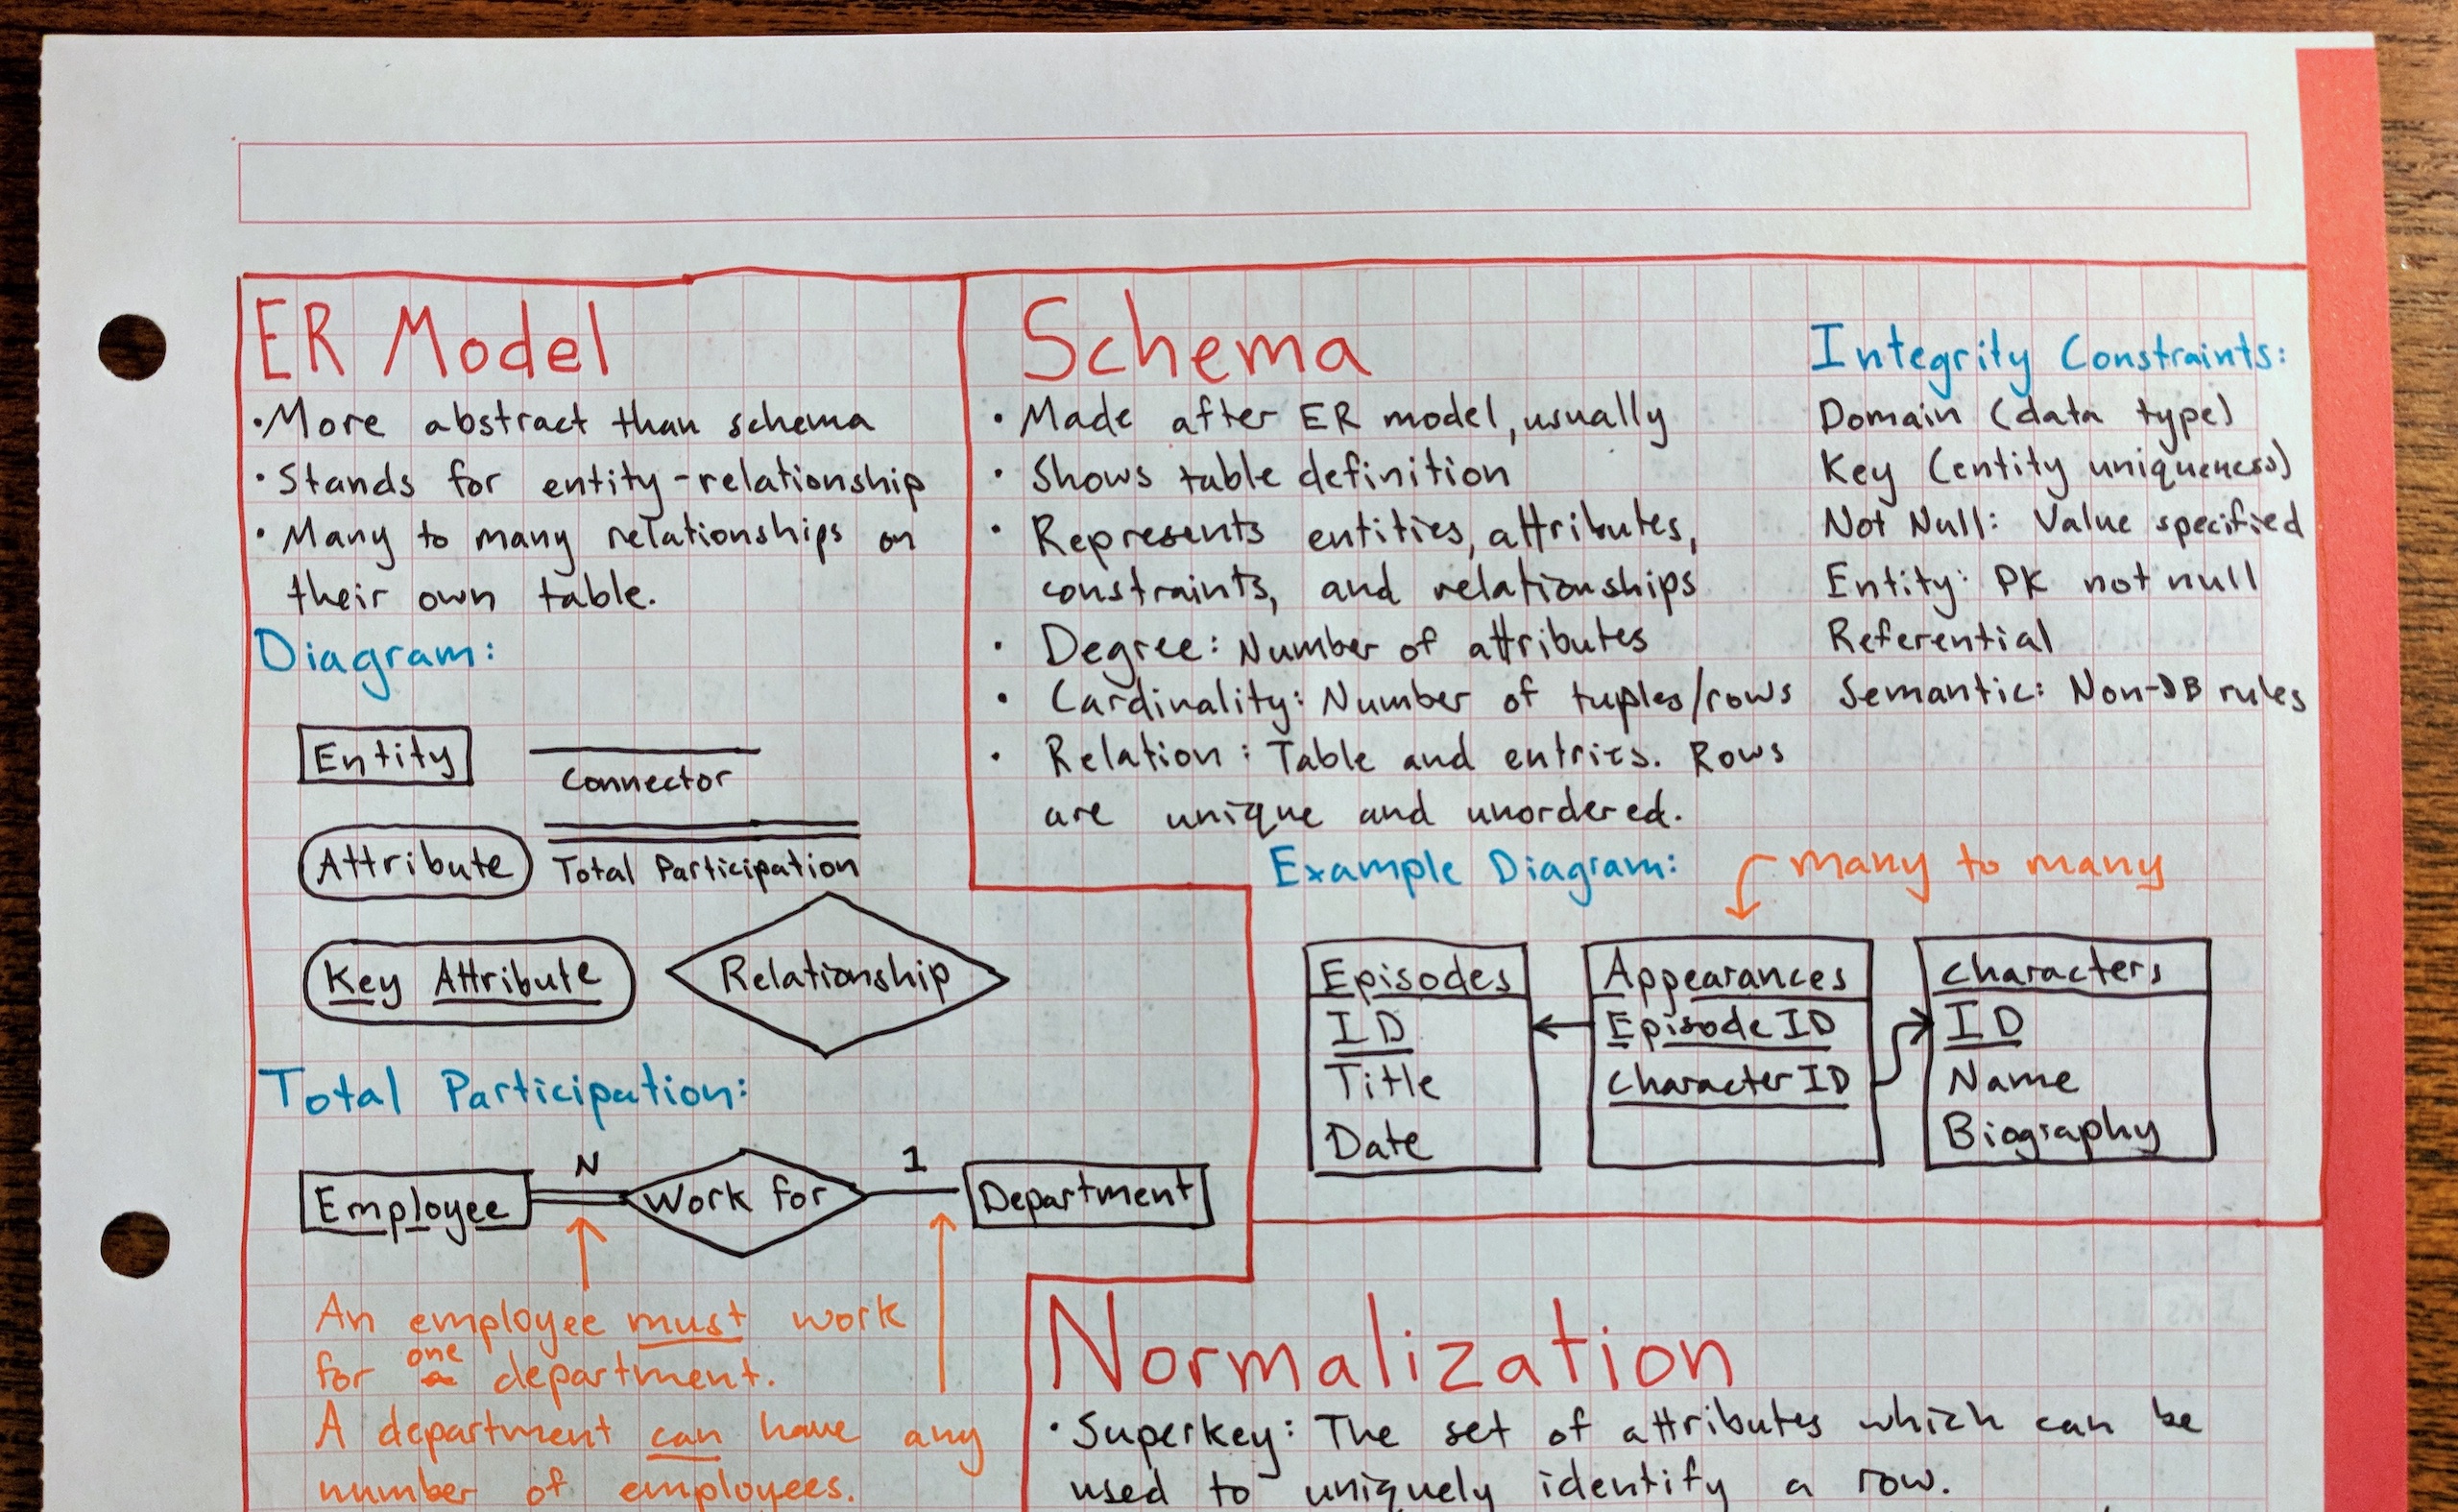 ER Model
•More abstract than schema
•Stands for entity-relationship
•Many to many relationships on
their own table.
Diagram:
Entity
Connector
Attribute
Total Participation
Key Attribute
Relationship
Total Participation:
N
1
Employee
Work for
Department
An employee must work
for one department.
A department can have any
number of employees.
Schema
•Made after ER model, usually
•Shows table definition
•Represents entities, attributes,
constraints, and relationships
•Degree: Number of attributes
•Cardinality: Number of tuples/rows
•Relation: Table and entries. Rows
are unique and unordered.
Integrity Constraints:
Domain (data type)
Key (entity uniqueness)
Not Null: Value specified
Entity: PK not null
Referential
Semantic: Non-DB rules
Example Diagram:
many to many
Episodes
ID
Title
Date
Appearances
Episode ID
Character ID
Characters
ID
Name
Biography
Normalization
•Superkey: The set of attributes which can be
used to uniquely identify a row.